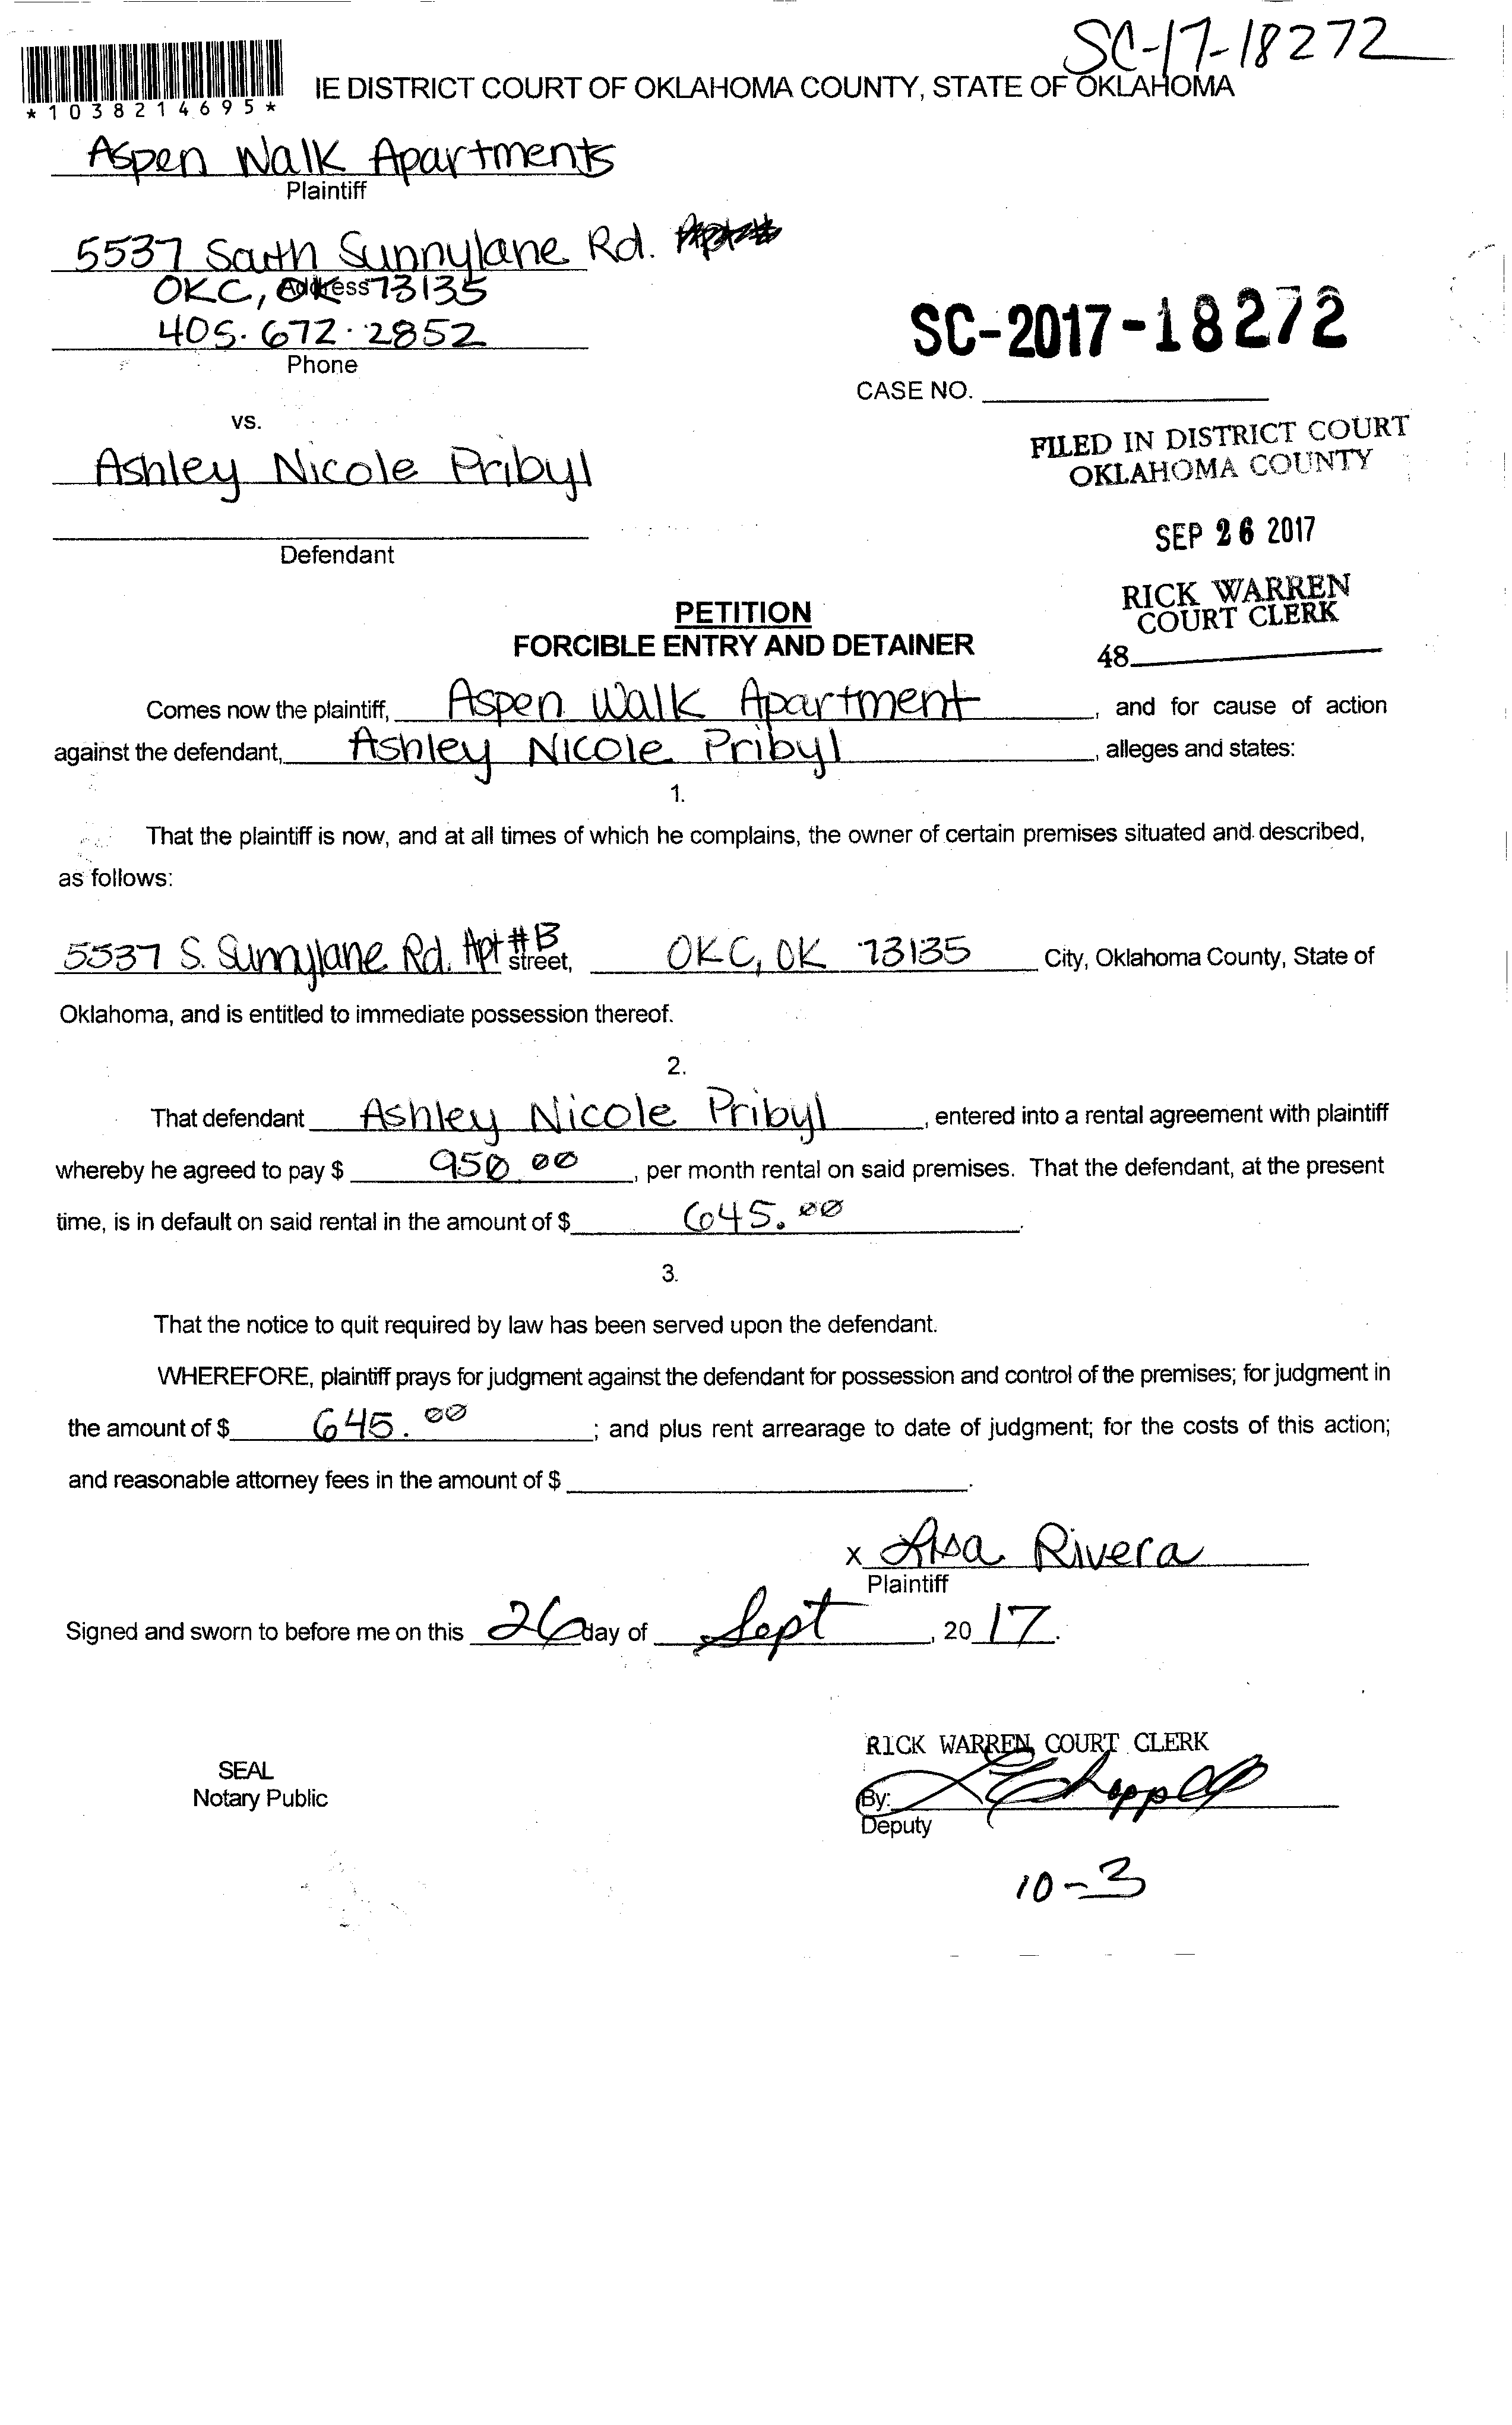 SC-17-18272
IE DISTRICT COURT OF OKLAHOMA COUNTY, STATE OF OKLAHOMA
*1038214695*
Aspen Walk Apartments
Plaintiff
5537 South Sunnylane Rd.
OKC, OK 73135
Address
405.672.2852
Phone
SC-2017-18272
CASE NO.
vs.
Ashley Nicole Pribyl
Defendant
FILED IN DISTRICT COURT
OKLAHOMA COUNTY
SEP 26 2017
RICK WARREN
COURT CLERK
48
PETITION
FORCIBLE ENTRY AND DETAINER
Comes now the plaintiff, Aspen Walk Apartment, and for cause of action
against the defendant, Ashley Nicole Pribyl, alleges and states:
1.
That the plaintiff is now, and at all times of which he complains, the owner of certain premises situated and described,
as follows:
5537 S. Sunnylane Rd. Apt #B street, OKC, OK 73135 City, Oklahoma County, State of
Oklahoma, and is entitled to immediate possession thereof.
2.
That defendant Ashley Nicole Pribyl, entered into a rental agreement with plaintiff
whereby he agreed to pay $ 950.00, per month rental on said premises. That the defendant, at the present
time, is in default on said rental in the amount of $ 645.00.
3.
That the notice to quit required by law has been served upon the defendant.
WHEREFORE, plaintiff prays for judgment against the defendant for possession and control of the premises; for judgment in
the amount of $ 645.00; and plus rent arrearage to date of judgment; for the costs of this action;
and reasonable attorney fees in the amount of $ .
x Lisa Rivera
Plaintiff
Signed and sworn to before me on this 26 day of Sept, 2017.
RICK WARREN COURT CLERK
SEAL
Notary Public
By:
Deputy
10-3